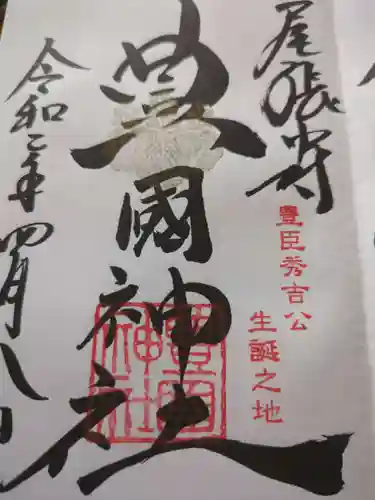 尾張中村
豊臣秀吉公
生誕之地
豊國神社
豊國神社
令和二年四月八日